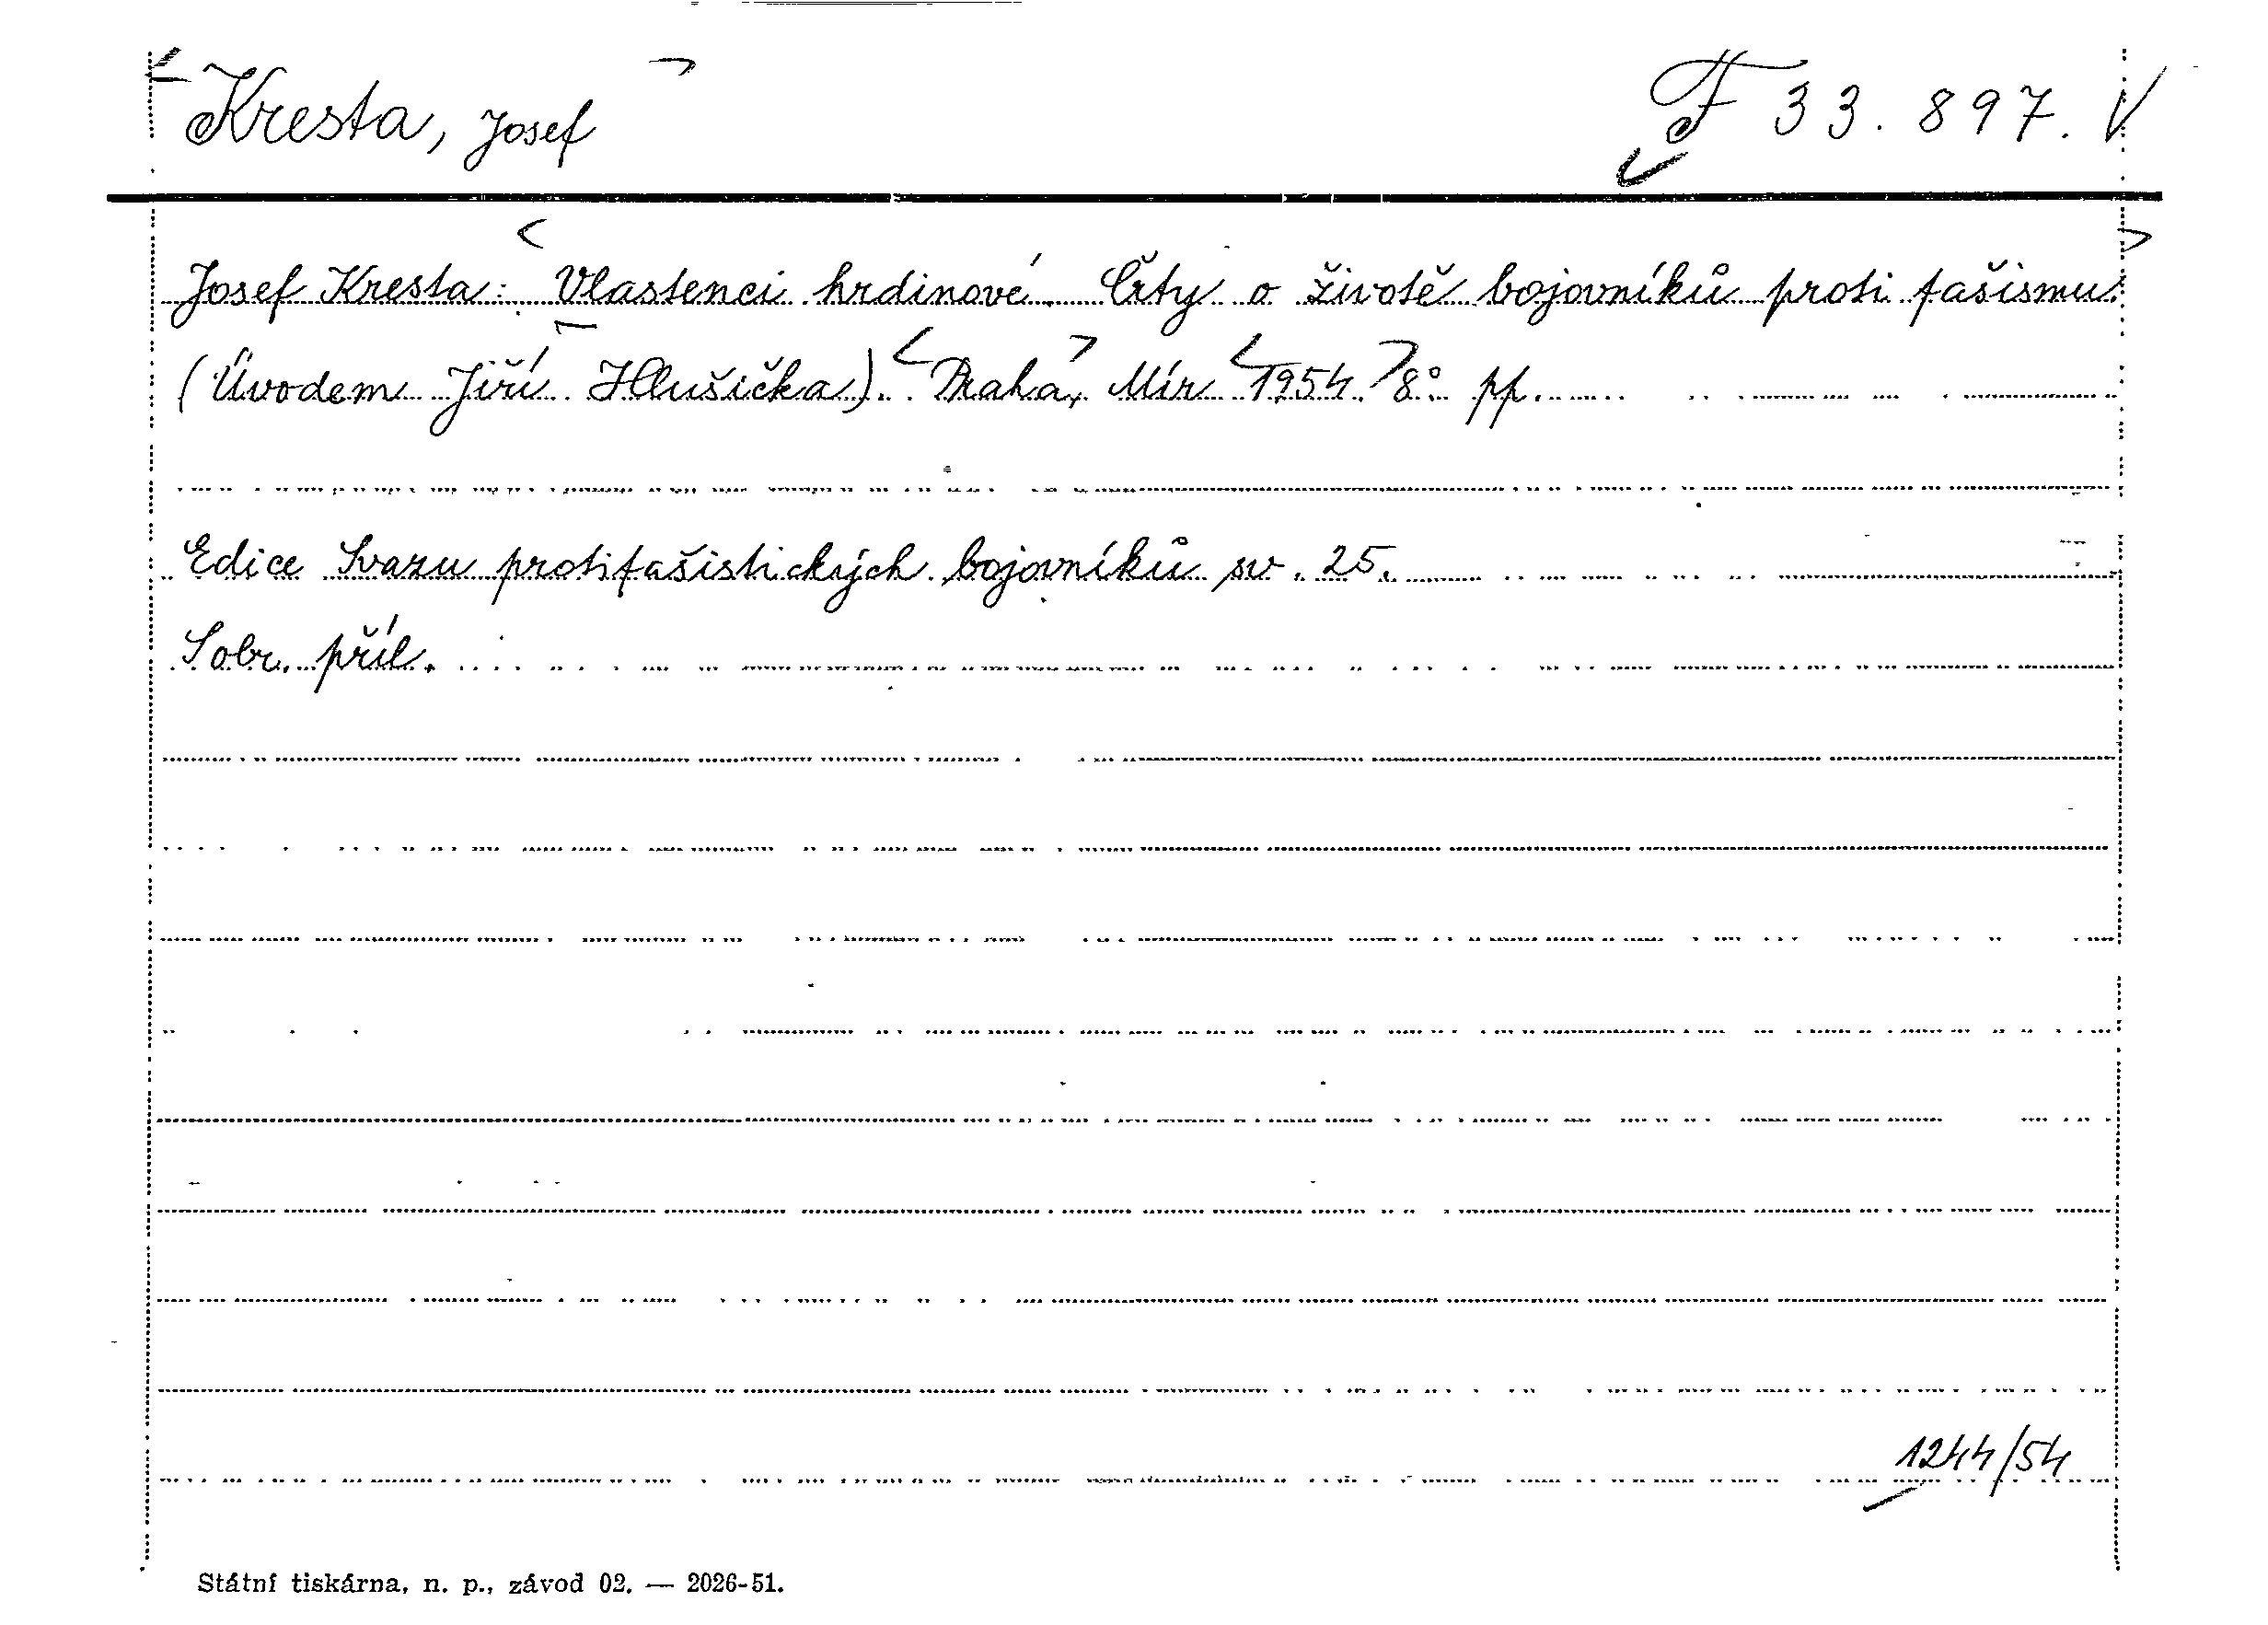 Kresta, Josef
F 33.897.
Josef Kresta: Vlastenci hrdinové. Črty o životě bojovníků proti fašismu.
(Úvodem Jiří Hlušička). Praha, Mír 1954. 8° pp.
Edice Svazu protifašistických bojovníků sv. 25.
S obr. příl.
1244/54
Státní tiskárna, n. p., závod 02. — 2026-51.